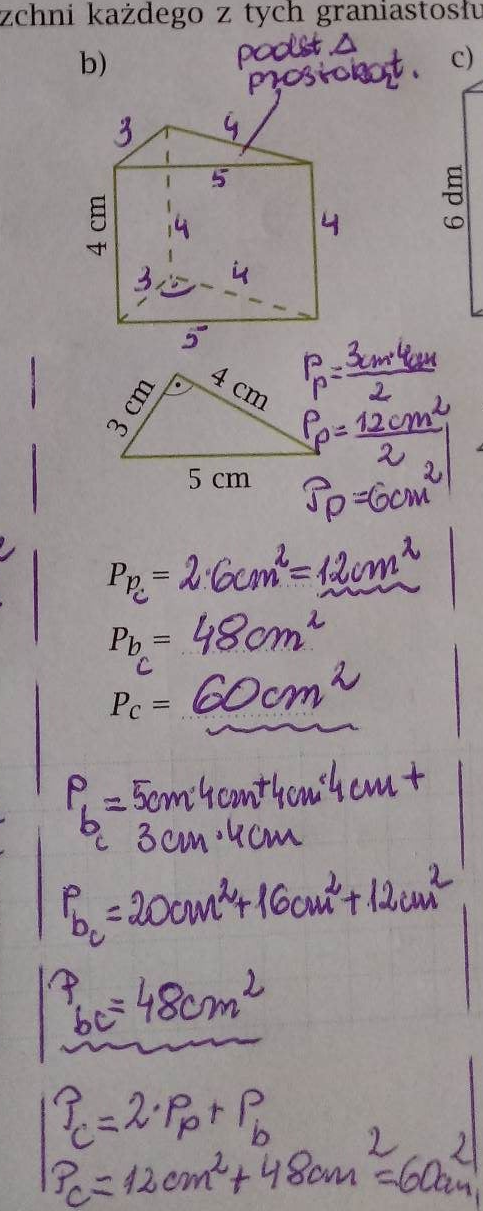 zchni każdego z tych graniastosłu
b)
podst. Δ
prostokąt.
c)
3
4
5
4 cm
4
4
6 dm
3
4
5
3 cm
4 cm
5 cm
Pp = 3cm·4cm / 2
Pp = 12cm² / 2
Pp = 6cm²
Ppc = 2·6cm² = 12cm²
Pbc = 48cm²
Pc = 60cm²
Pbc = 5cm·4cm + 4cm·4cm +
3cm·4cm
Pbc = 20cm² + 16cm² + 12cm²
Pbc = 48cm²
Pc = 2·Pp + Pb
Pc = 12cm² + 48cm² = 60cm²